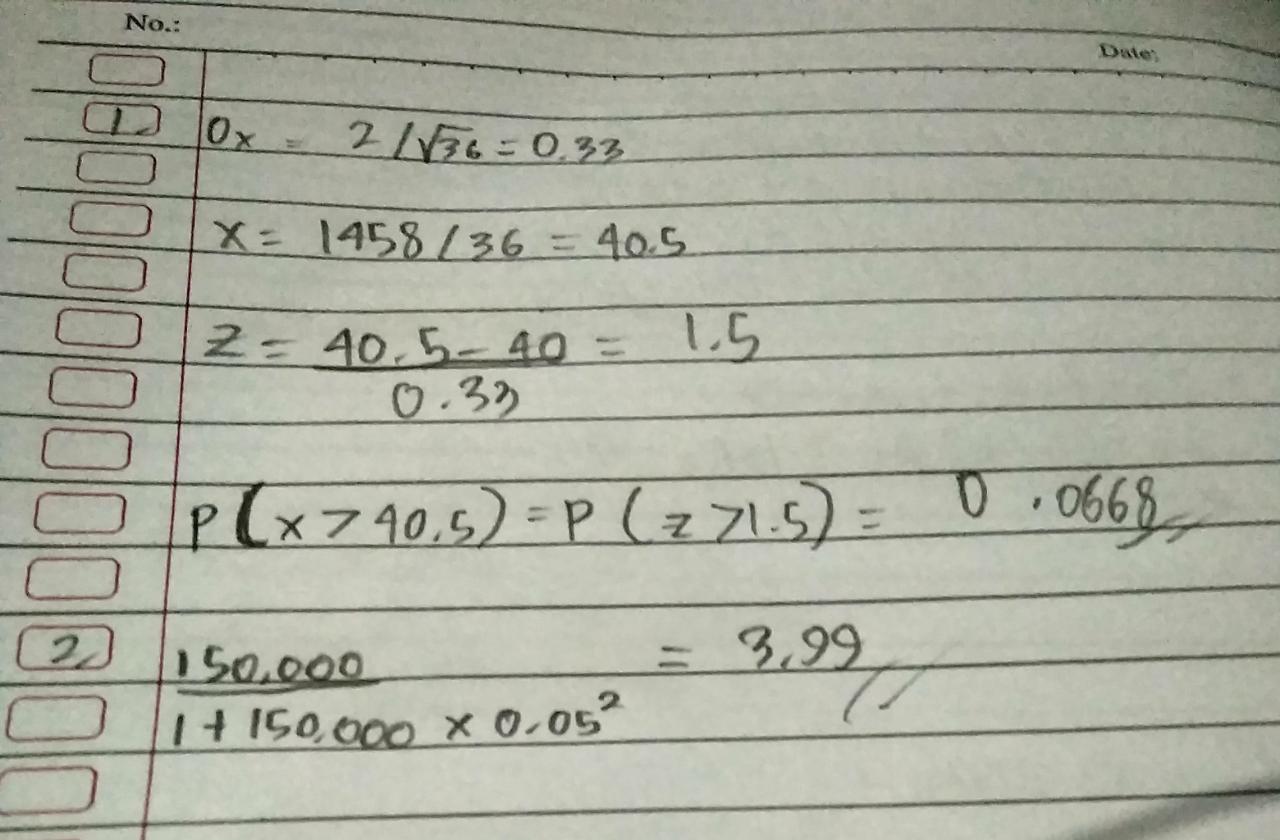 No.:
Date:
1. Ox = 2/√36 = 0.33
x = 1458/36 = 40.5
z = 40.5-40 = 1.5
0.33
P(x>40.5) = P(z>1.5) = 0.0668
2. 150.000 = 3.99
1 + 150.000 x 0.05²